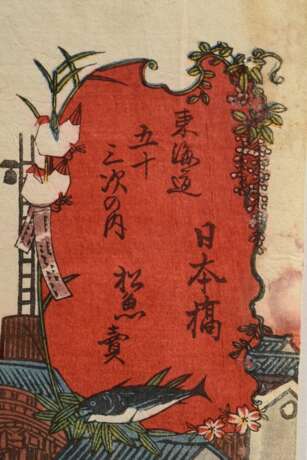 東海道
五十
三次の内
日本橋
松魚賣